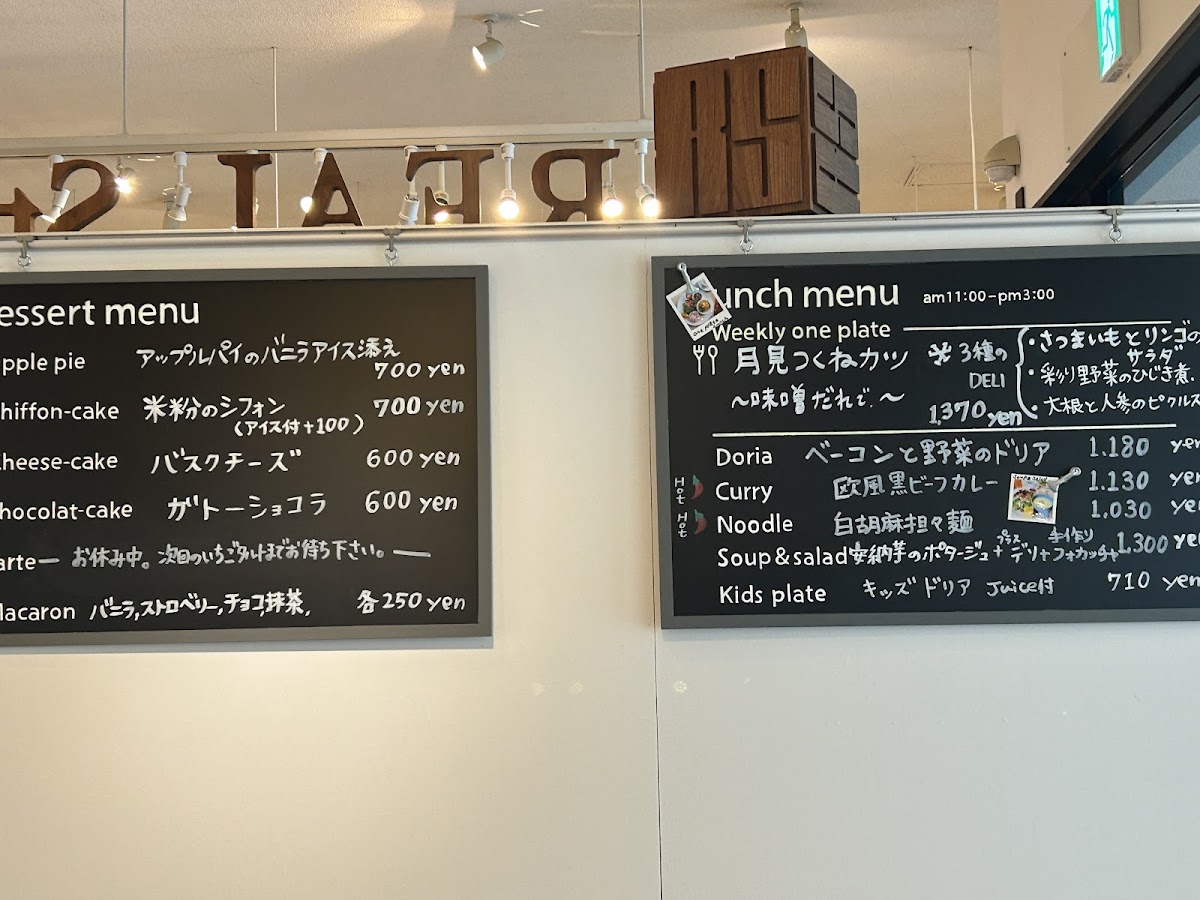 essert menu
pple pie アップルパイのバニラアイス添え
700 yen
hiffon-cake 米粉のシフォン 700 yen
(アイス付+100)
heese-cake バスクチーズ 600 yen
hocolat-cake ガトーショコラ 600 yen
arte お休み中。次回のいちごタルトまでお待ち下さい。
acaron バニラ,ストロベリー,チョコ,抹茶, 各250 yen
unch menu am11:00-pm3:00
Weekly one plate
月見つくねカツ
〜味噌だれで.〜
1,370 yen
※3種の
DELI
・さつまいもとリンゴの
サラダ
・彩り野菜のひじき煮.
・大根と人参のピクルス
Doria ベーコンと野菜のドリア 1.180 yen
Hot Curry 欧風黒ビーフカレー 1.130 ye
Hot Noodle 白胡麻担々麺 1.030 ye
Soup&salad 安納芋のポタージュ+プラス デリ+手作りフォカッチャ 1.300 yen
Kids plate キッズドリア Juice付 710 yen